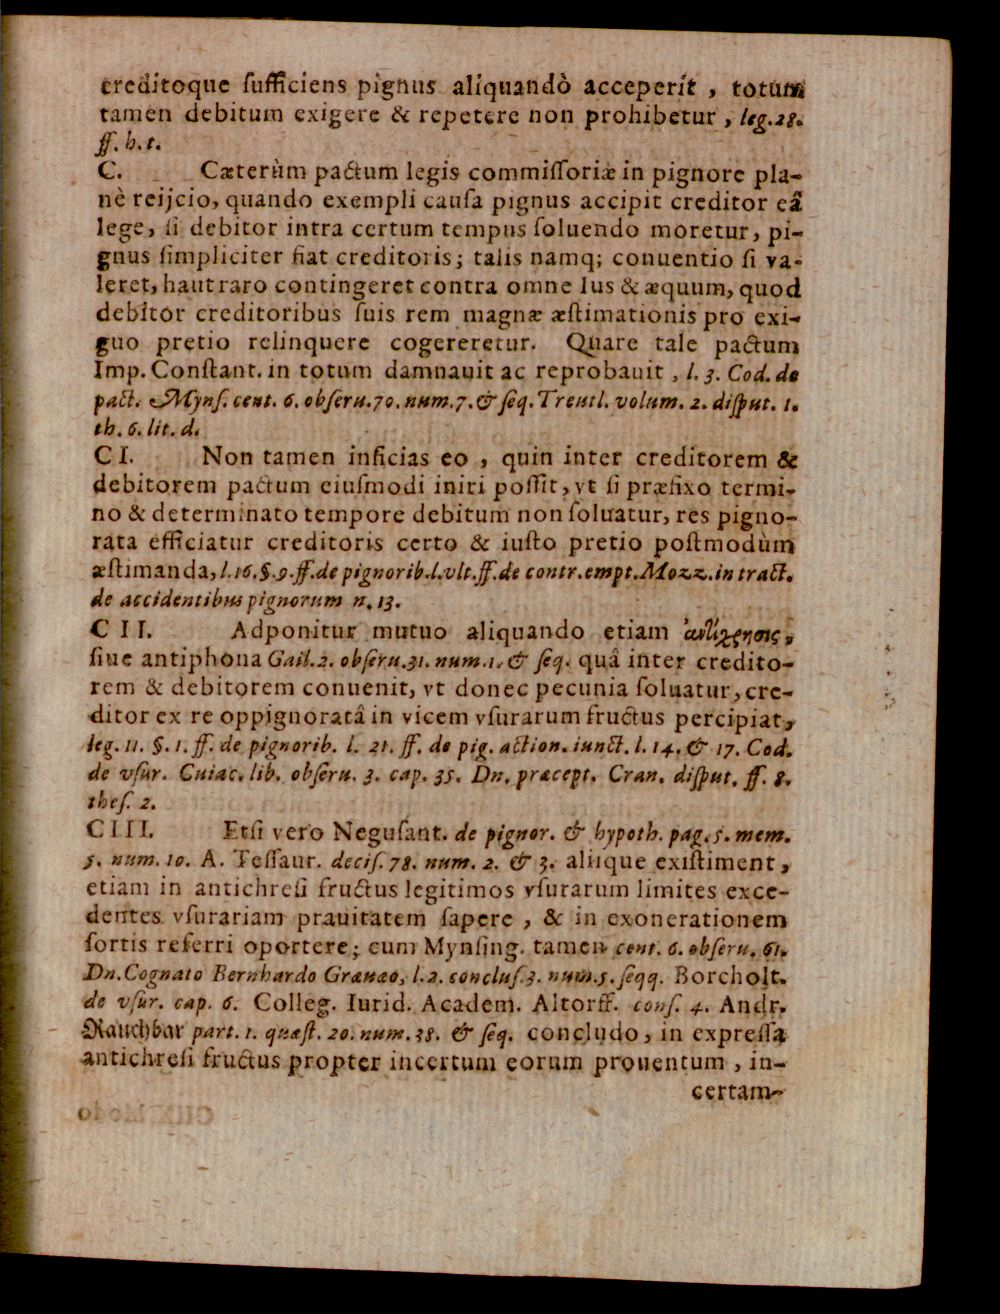 creditoque ſufficiens pignus aliquandò acceperit , totum
tamen debitum exigere & repetere non prohibetur , leg.28.
ff. h.t.
C. Cæterùm pactum legis commiſſoriæ in pignore pla-
nè reijcio, quando exempli cauſa pignus accipit creditor eâ
lege, ſi debitor intra certum tempus ſoluendo moretur, pi-
gnus ſimpliciter fiat creditoris; talis namq; conuentio ſi va-
leret, haut raro contingeret contra omne Ius & æquum, quod
debitor creditoribus ſuis rem magnæ æſtimationis pro exi-
guo pretio relinquere cogereretur. Quare tale pactum
Imp. Conſtant. in totum damnauit ac reprobauit , l. 3. Cod. de
pact. Mynſ. cent. 6. obſeru.70. num.7. & ſeq. Treutl. volum. 2. diſput. 1.
th. 6. lit. d.
CI. Non tamen inficias eo , quin inter creditorem &
debitorem pactum eiuſmodi iniri poſſit, vt ſi præfixo termi-
no & determinato tempore debitum non ſoluatur, res pigno-
rata efficiatur creditoris certo & iuſto pretio poſtmodùm
æſtimanda, l.16.§.9.ff.de pignorib.l.vlt.ff.de contr.empt.Mozz.in tract.
de accidentibus pignorum n. 13.
CII. Adponitur mutuo aliquando etiam ἀντίχρησις,
ſiue antiphona Gail.2. obſeru.31. num.1. & ſeq. quâ inter credito-
rem & debitorem conuenit, vt donec pecunia ſoluatur, cre-
ditor ex re oppignoratâ in vicem vſurarum fructus percipiat,
leg. 11. §. 1. ff. de pignorib. l. 21. ff. de pig. action. iunct. l. 14. & 17. Cod.
de vſur. Cuiac. lib. obſeru. 3. cap. 35. Dn. præcept. Cran. diſput. ff. 8.
theſ. 2.
CIII. Etſi vero Neguſant. de pignor. & hypoth. pag. 5. mem.
5. num. 10. A. Teſſaur. deciſ. 78. num. 2. & 3. aliique exiſtiment ,
etiam in antichreſi fructus legitimos vſurarum limites exce-
dentes vſurariam prauitatem ſapere , & in exonerationem
ſortis referri oportere; cum Mynſing. tamen cent. 6. obſeru. 61.
Dn. Cognato Bernhardo Grauæo, l.2. concluſ.3. num.5. ſeqq. Borcholt.
de vſur. cap. 6. Colleg. Iurid. Academ. Altorff. conſ. 4. Andr.
Rauchbar part. 1. quæſt. 20. num. 38. & ſeq. concludo, in expreſſa
antichreſi fructus propter incertum eorum prouentum , in-
certam-